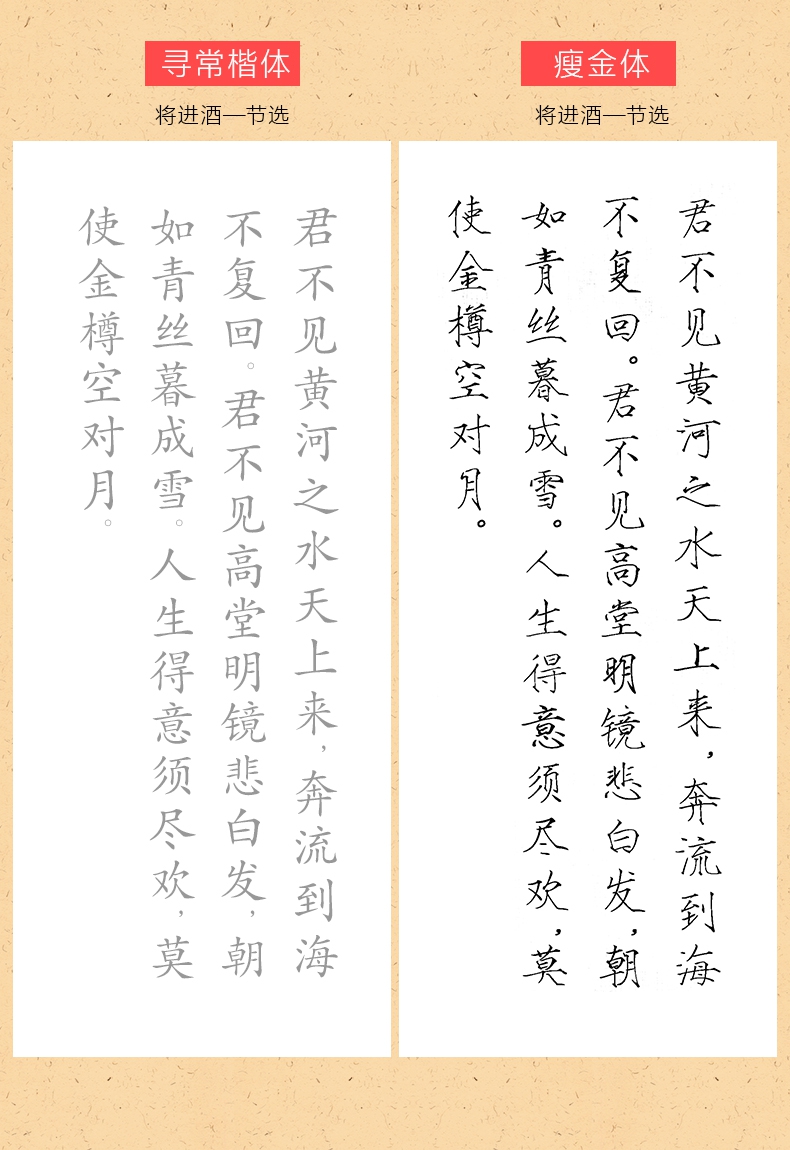 寻常楷体
将进酒—节选
君不见黄河之水天上来，奔流到海
不复回。君不见高堂明镜悲白发，朝
如青丝暮成雪。人生得意须尽欢，莫
使金樽空对月。
瘦金体
将进酒—节选
君不见黄河之水天上来，奔流到海
不复回。君不见高堂明镜悲白发，朝
如青丝暮成雪。人生得意须尽欢，莫
使金樽空对月。